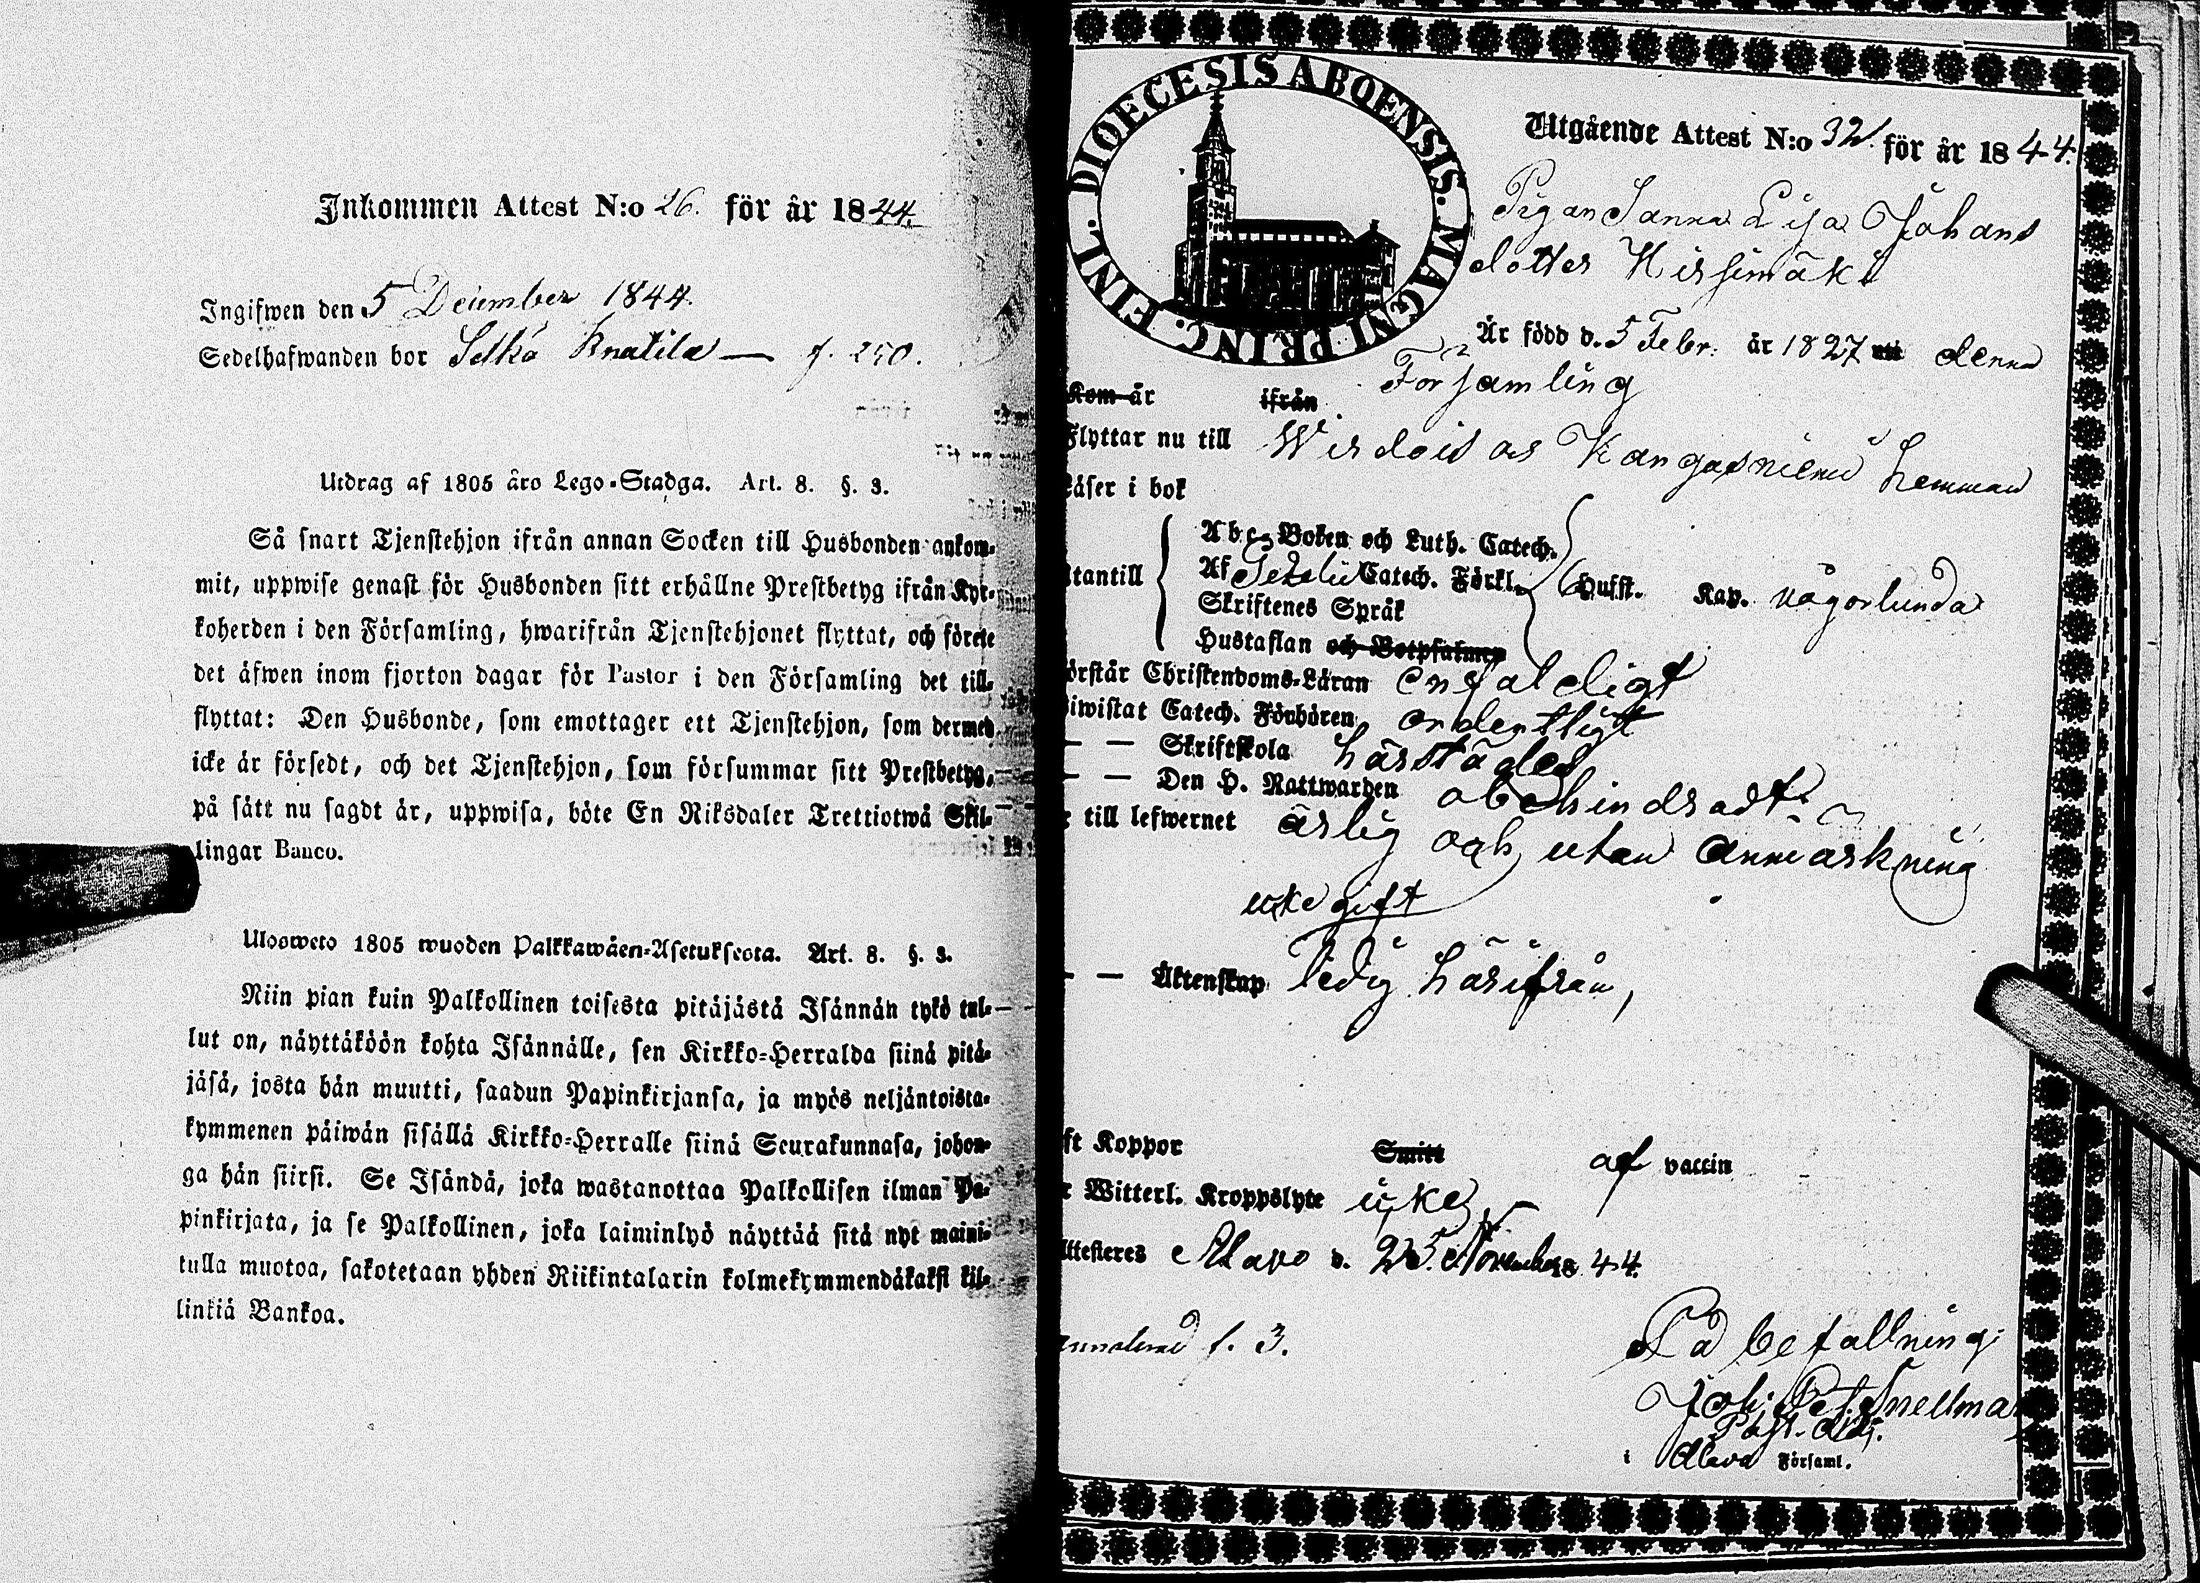 Inkommen Attest N:o 26. för år 1844.
Ingifwen den 5 December 1844.
Sedelhafwanden bor Selkä Knatila — f. 250.
Utdrag af 1805 åro Lego-Stadga. Art. 8. §. 3.
Så snart Tjenstehjon ifrån annan Socken till Husbonden ankom-
mit, uppwise genast för Husbonden sitt erhållne Prestbetyg ifrån Kyr-
koherden i den Församling, hwarifrån Tjenstehjonet flyttat, och förete
det äfwen inom fjorton dagar för Pastor i den Församling det till-
flyttat: Den Husbonde, som emottager ett Tjenstehjon, som dermed
icke är försedt, och det Tjenstehjon, som försummar sitt Prestbetyg,
på sätt nu sagdt är, uppwisa, böte En Riksdaler Trettiotwå Skil-
lingar Banco.
Ulosweto 1805 wuoden Palkkawäen-Asetuksesta. Art. 8. §. 3.
Niin pian kuin Palkollinen toisesta pitäjästä Isännän tykö tul-
lut on, näyttäköön kohta Isännälle, sen Kirkko-Herralda siinä pitä-
jäsä, josta hän muutti, saadun Papinkirjansa, ja myös neljäntoista-
kymmenen päiwän sisällä Kirkko-Herralle siinä Seurakunnasa, johon-
ga hän siirsi. Se Isändä, joka wastanottaa Palkollisen ilman Pa-
pinkirjata, ja se Palkollinen, joka laiminlyö näyttää sitä nyt maini-
tulla muotoa, sakotetaan yhden Riikintalarin kolmekymmendäkaksi kil-
linkiä Bankoa.
DIOECESIS ABOENSIS. MAGNI PRINC. FINL.
Utgående Attest N:o 32. för år 1844.
Pigan Sanna Lisa Johans
dotter Hirsimäki
Är född d. 5 Febr. år 1827 uti denna
Församling
Kom år ifrån
Flyttar nu till Wirdois as Kangasniemi hemman
Läser i bok
Utantill
Abc-Boken och Luth. Catech.
Af Catech. Förkl.
Skriftenes Språk
Hustaflan och Botpsalmer
Hufst. Kap. någorlunda
örstår Christendoms-Läran enfaldigt
iwistat Catech. Förhören ordentligt
— — Skriftskola härstädes
— — Den H. Nattwarden obehindradt
r till lefwernet ärlig och utan anmärkning
icke gift
— — Äktenskap ledig härifrån,
ft Koppor Smitt af vaccin
r Witterl. Kroppslyte icke
Attesteres Alavo d. 25 November 1844.
f. 3.
På befallning
Joh. Snellman
Past. Adj.
i Alavo Församl.